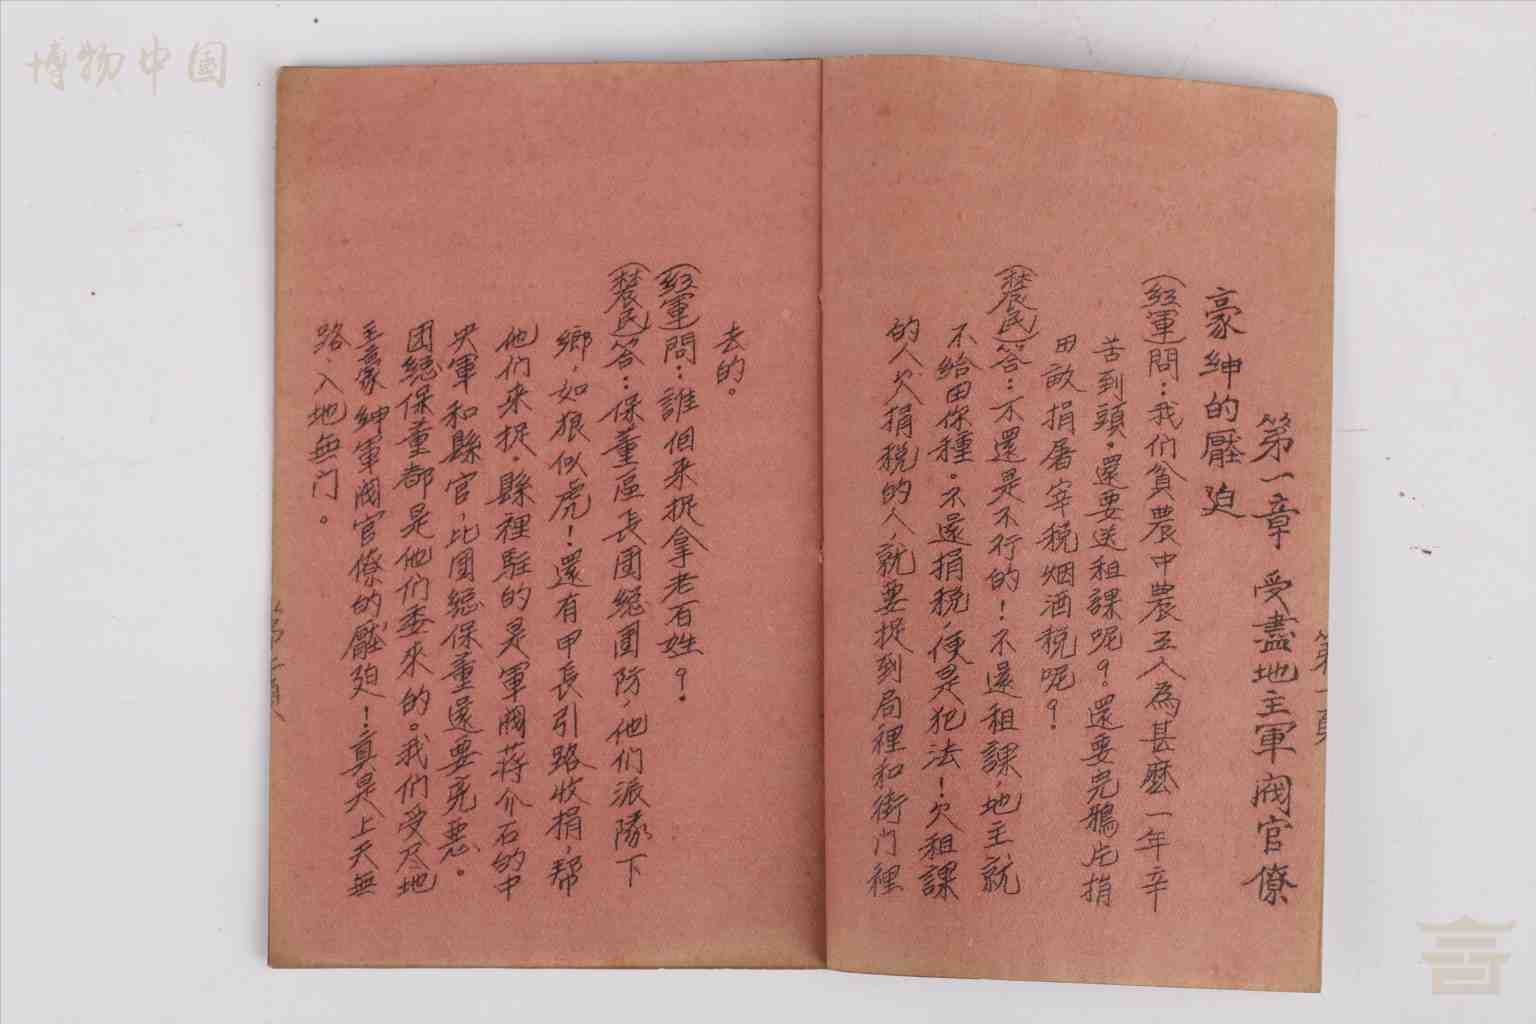 博物中国
第一頁
第一章 受盡地主軍阀官僚
豪紳的壓迫
(红軍)問：我们貧農中農五人為甚麽一年辛
苦到頭。還要送租課呢？還要完鴉片捐
田畝捐屠宰税烟酒税呢？
(農民)答：不還是不行的！不還租課，地主就
不給田你種。不還捐税，便是犯法！欠租課
的人欠捐税的人，就要捉到局裡和衙门裡
去的。
(红軍)問：誰個来捉拿老百姓？
(農民)答：保董區長團總團防，他们派隊下
鄉，如狼似虎！還有甲長引路收捐，幫
他们来捉。縣裡駐的是軍阀蒋介石的中
央軍和縣官，比團總保董還要兇惡。
团總保董都是他们委來的。我们受尽地
主豪紳軍阀官僚的壓廹！真是上天無
路，入地無门。
第二頁